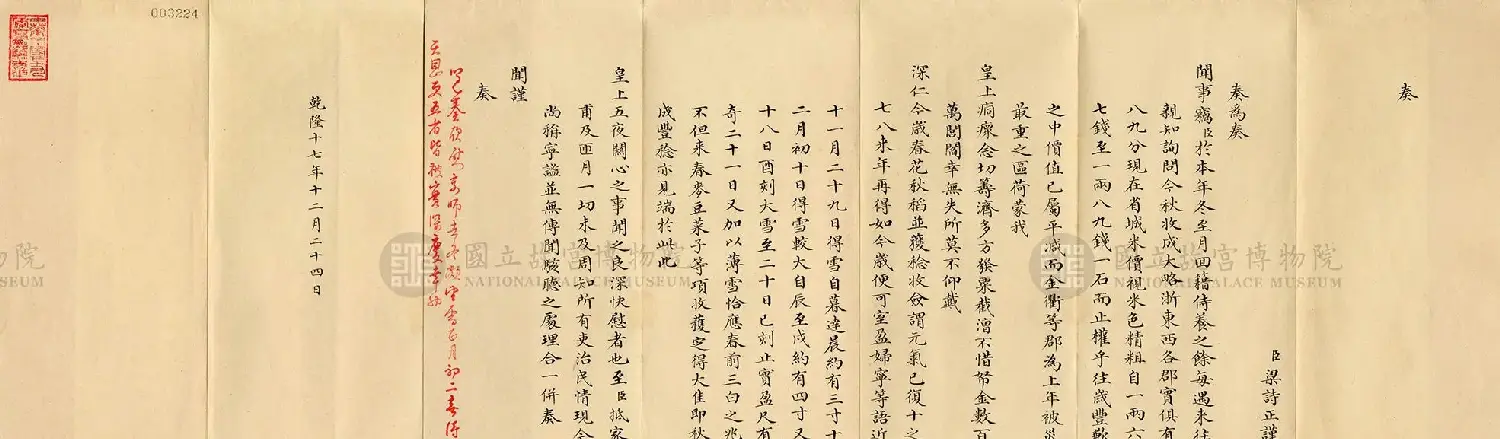 奏
臣梁詩正謹
奏為奏
聞事竊臣於本年冬至月回籍侍養之餘每遇來往
親知詢問今秋收成大略浙東西各郡實俱有
八九分現在省城米價視米色精粗自一兩六
七錢至一兩八九錢一石而止權乎往歲豐歉
之中價值已屬平減而金衢等郡為上年被災
最重之區荷蒙我
皇上痌瘝念切籌濟多方發粟截漕不惜帑金數百
萬閭閻幸無失所莫不仰戴
深仁今歲春花秋稻並獲稔收僉謂元氣已復十之
七八來年再得如今歲便可室盈婦寧等語近
十一月二十九日得雪自暮達晨約有三寸十
二月初十日得雪較大自辰至戌約有四寸又
十八日酉刻大雪至二十日巳刻止實盈尺有
奇二十一日又加以薄雪恰應春前三白之兆
不但來春麥豆菜子等項收穫定得大佳即秋
成豐稔亦見端於此此
皇上五夜關心之事聞之良深快慰者也至臣抵家
甫及匝月一切未及周知所有吏治民情現今
尚稱寧謐並無傳聞駭聽之處理合一併奏
聞謹
奏
天恩
乾隆十七年十二月二十四日
003224
國立故宮博物院
NATIONAL PALACE MUSEUM
國立故宮博物院
NATIONAL PALACE MUSEUM